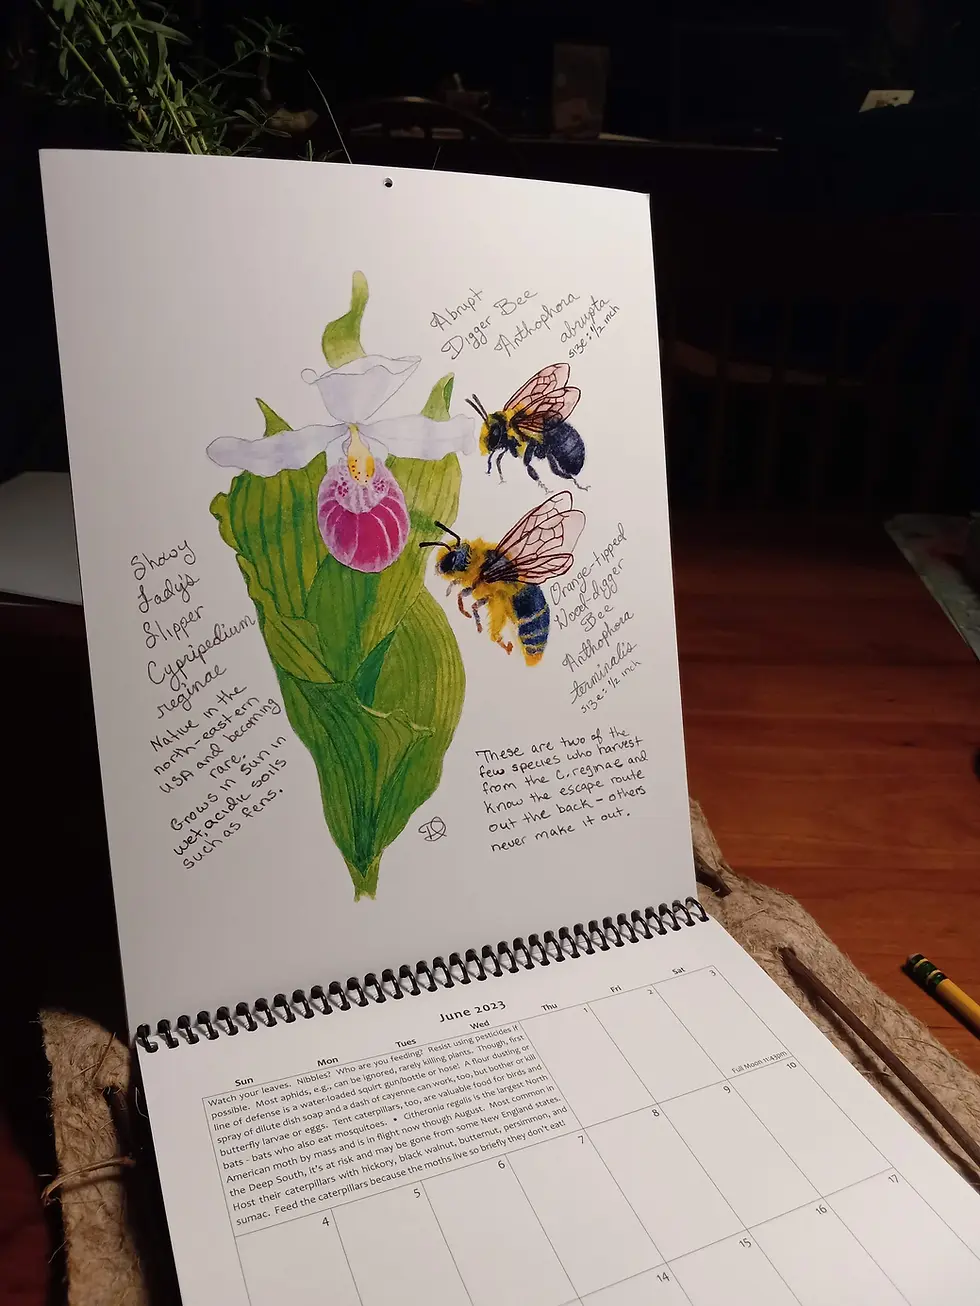 Abrupt
Digger Bee
Anthophora
abrupta
size: 1/2 inch
Showy
Lady's
Slipper
Cypripedium
reginae
Native in the
north-eastern
USA and becoming
rare.
Grows in sun in
wet, acidic soils
such as fens.
Orange-tipped
Wood-digger
Bee
Anthophora
terminalis
size: 1/2 inch
These are two of the
few species who harvest
from the C. reginae and
know the escape route
out the back - others
never make it out.
June 2023
Sun Mon Tues Wed Thu Fri Sat
Watch your leaves. Nibbles? Who are you feeding? Resist using pesticides if
possible. Most aphids, e.g., can be ignored, rarely killing plants. Though, first
line of defense is a water-loaded squirt gun/bottle or hose! A flour dusting or
spray of dilute dish soap and a dash of cayenne can work, too, but bother or kill
butterfly larvae or eggs. Tent caterpillars, too, are valuable food for birds and
bats - bats who also eat mosquitoes. • Citheronia regalis is the largest North
American moth by mass and is in flight now though August. Most common in
the Deep South, it's at risk and may be gone from some New England states.
Host their caterpillars with hickory, black walnut, butternut, persimmon, and
sumac. Feed the caterpillars because the moths live so briefly they don't eat!
1 2 3
Full Moon 11:43pm
4 5 6 7 8 9 10
14 15 16 17